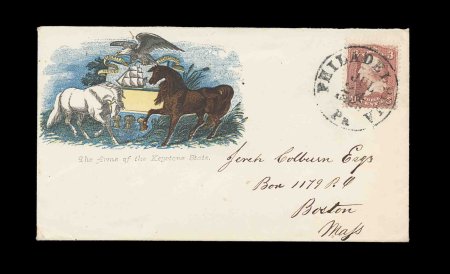 PHILADEL
JUL
Pa.
The Arms of the Keystone State.
Zerah Colburn Esqr
Box 1179 P.O
Boston
Mass